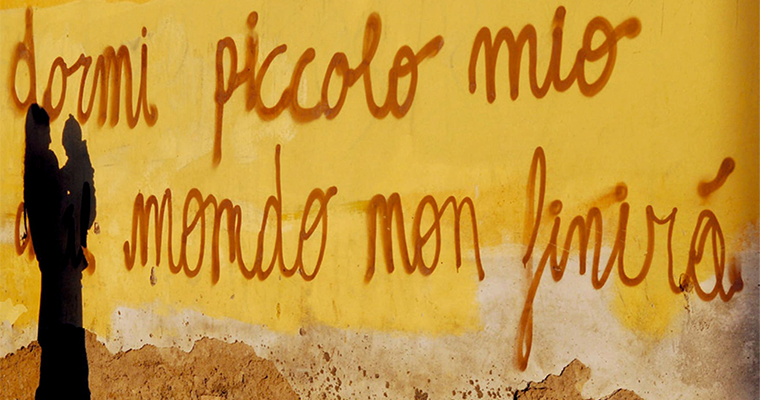 dormi piccolo mio
mondo non finirá